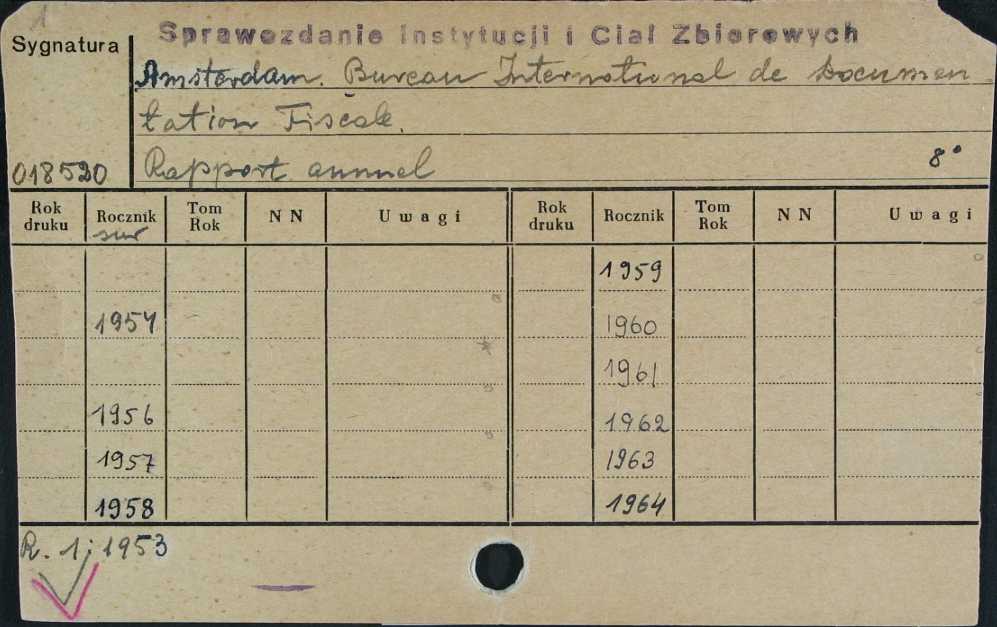 1
Sprawozdanie Instytucji i Ciał Zbiorowych
Sygnatura
Amsterdam. Bureau International de Documen
tation Fiscale.
018520 Rapport annuel 8°
Rok druku Rocznik Tom Rok NN Uwagi Rok druku Rocznik Tom Rok NN Uwagi
sur
1959
1954 1960
1961
1956 1962
1957 1963
1958 1964
R. 1: 1953